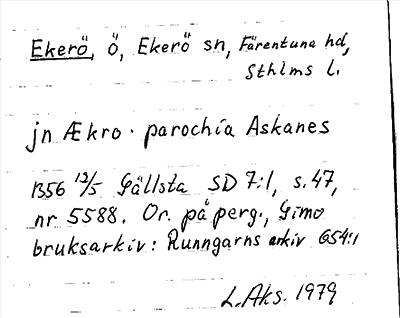 Ekerö, ö, Ekerö sn, Färentuna hd,
Sthlms l.
jn Ækro. parochia Askanes
1356 12/5 Gällsta SD 7:1, s. 47,
nr 5588. Or. på perg., Gimo
bruksarkiv: Runngarns arkiv 654:1
L.Aks. 1979